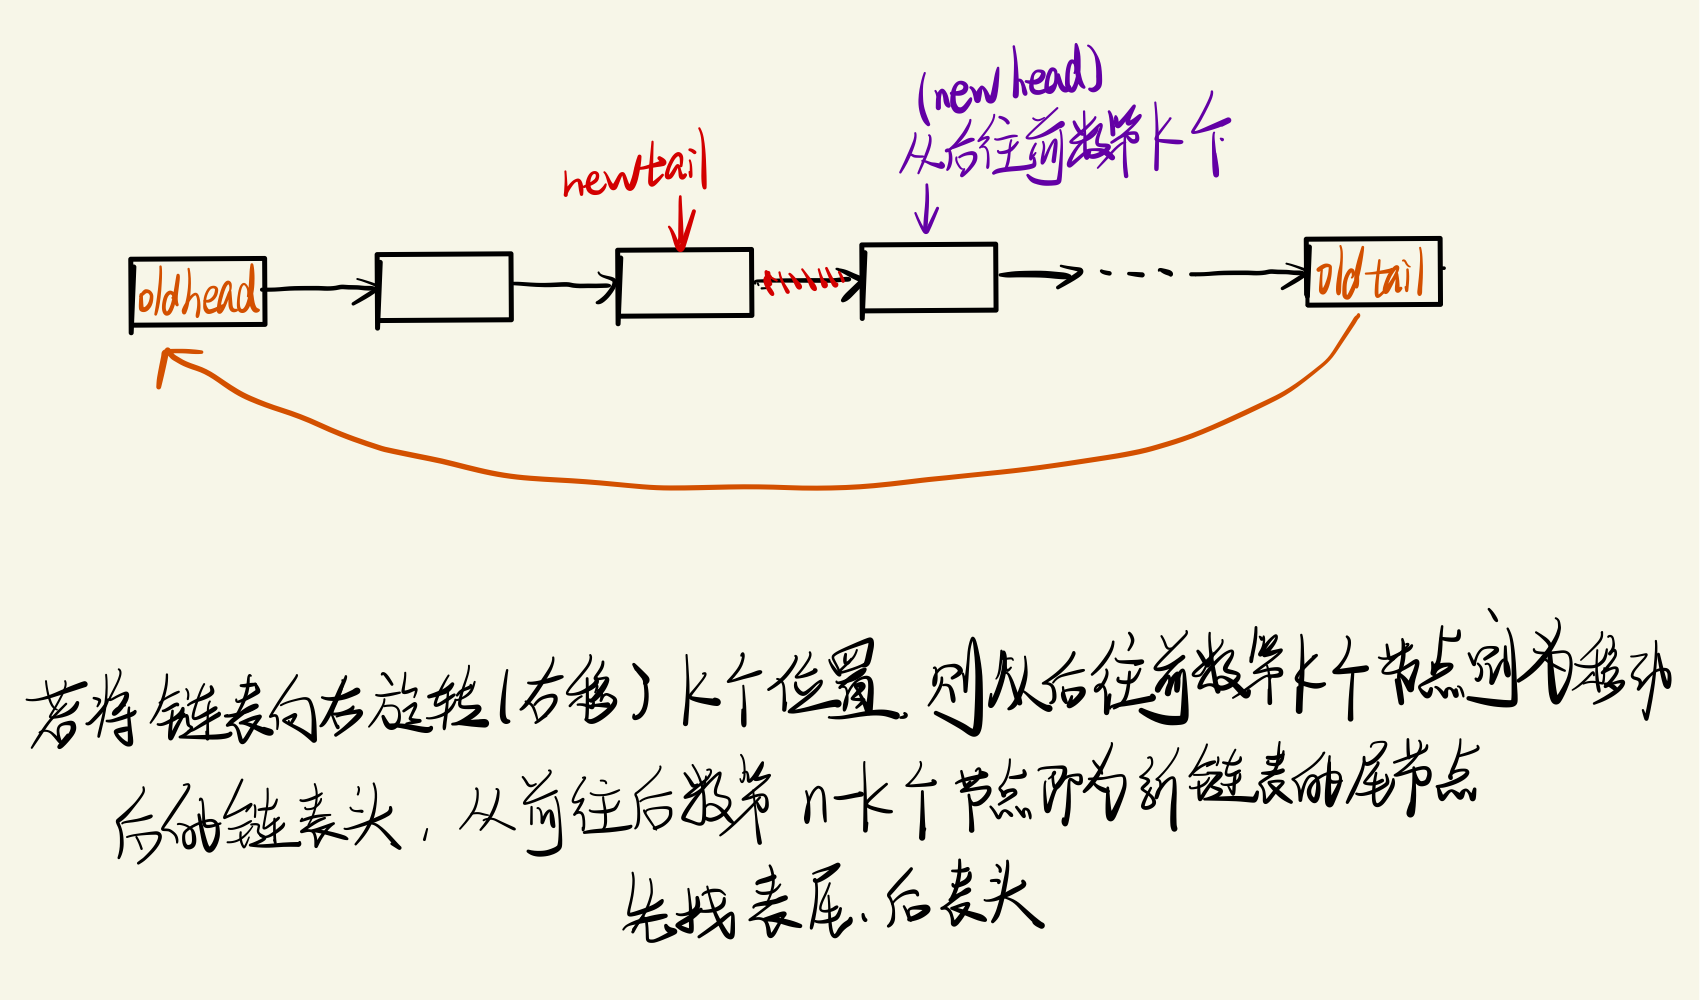 (new head)
从后往前数第k个
newtail
oldhead
oldtail
若将链表向右旋转(右移)k个位置,则从后往前数第k个节点则为移动
后的链表头,从前往后数第n-k个节点即为新链表的尾节点
先找表尾、后表头